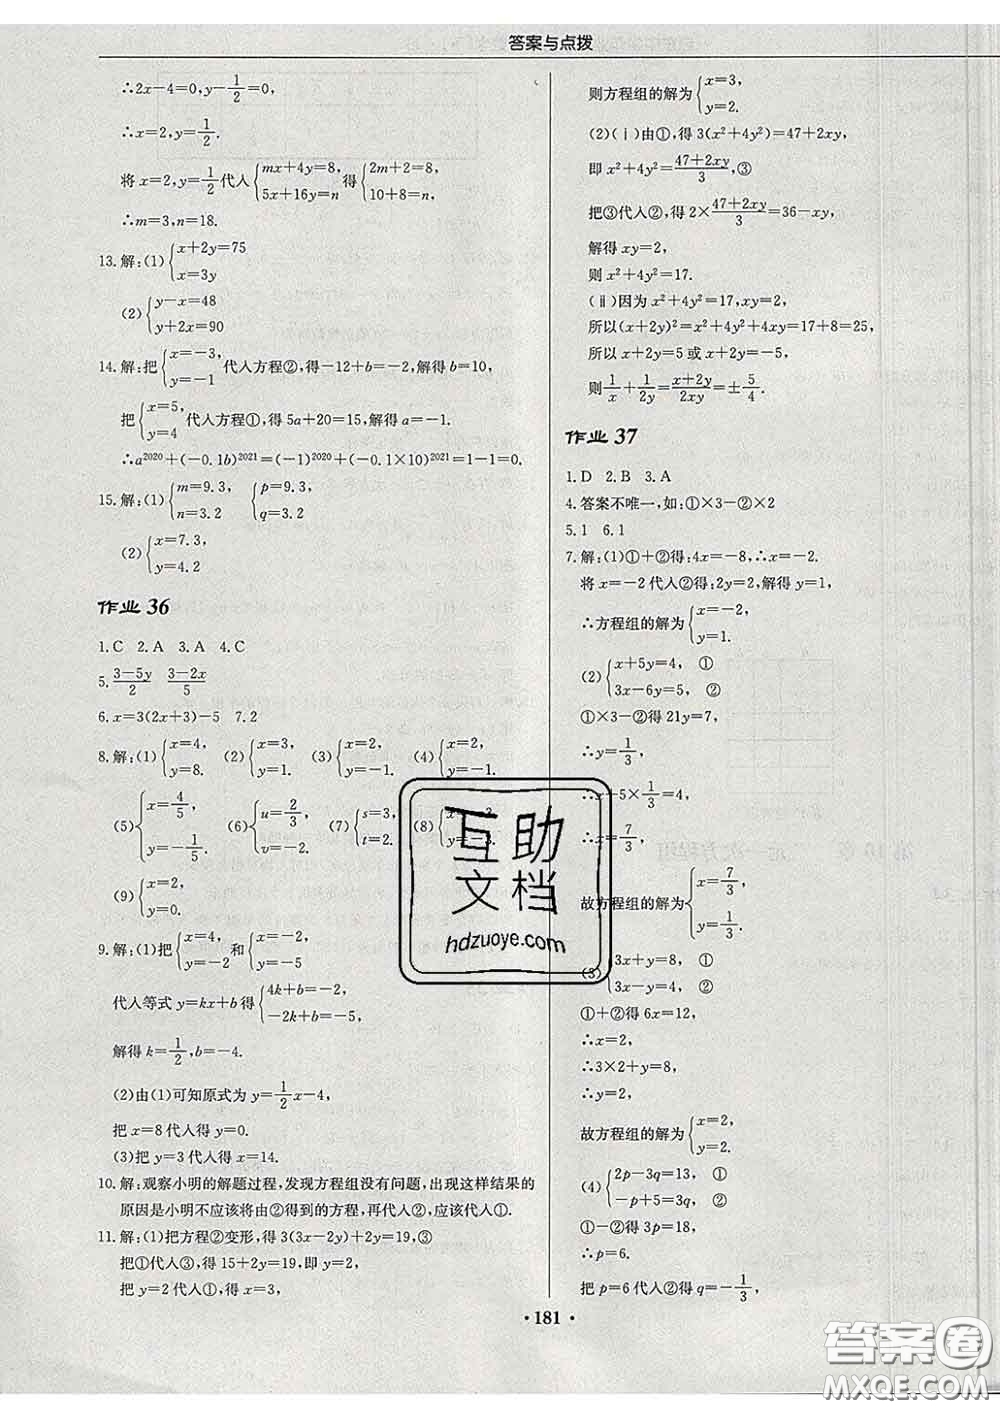 答案与点拨
∴2x-4=0,y-1/2=0,
∴x=2,y=1/2.
将x=2,y=1/2代入{mx+4y=8, 5x+16y=n 得{2m+2=8, 10+8=n,
∴m=3,n=18.
13.解:(1){x+2y=75 x=3y
(2){y-x=48 y+2x=90
14.解:把{x=-3, y=-1 代入方程②,得-12+b=-2,解得b=10,
把{x=5, y=4 代入方程①,得5a+20=15,解得a=-1.
∴a²⁰²⁰+(-0.1b)²⁰²¹=(-1)²⁰²⁰+(-0.1×10)²⁰²¹=1-1=0.
15.解:(1){m=9.3, n=3.2 {p=9.3, q=3.2
(2){x=7.3, y=4.2
作业 36
1.C 2.A 3.A 4.C
5.(3-5y)/2 (3-2x)/5
6.x=3(2x+3)-5 7.2
8.解:(1){x=4, y=8. (2){x=3, y=1. (3){x=2, y=-1. (4){x=2, y=-1.
(5){x=4/5, y=-1/5. (6){u=2/3, v=-2. (7){s=3, t=2. (8)
(9){x=2, y=0.
9.解:(1)把{x=4, y=-2 和{x=-2, y=-5
代入等式y=kx+b得{4k+b=-2, -2k+b=-5,
解得k=1/2,b=-4.
(2)由(1)可知原式为y=1/2x-4,
把x=8代入得y=0.
(3)把y=3代入得x=14.
10.解:观察小明的解题过程,发现方程组没有问题,出现这样结果的
原因是小明不应该将由②得到的方程,再代入②,应该代入①.
11.解:(1)把方程②变形,得3(3x-2y)+2y=19,③
把①代入③,得15+2y=19,即y=2,
把y=2代入①,得x=3,
则方程组的解为{x=3, y=2.
(2)(ⅰ)由①,得3(x²+4y²)=47+2xy,
即x²+4y²=(47+2xy)/3,③
把③代入②,得2×(47+2xy)/3=36-xy,
解得xy=2,
则x²+4y²=17.
(ⅱ)因为x²+4y²=17,
所以(x+2y)²=x²+4y²+4xy=17+8=25,
所以x+2y=5或x+2y=-5,
则1/x+1/2y=(x+2y)/2xy=±5/4.
作业 37
1.D 2.B 3.A
4.答案不唯一,如:①×3-②×2
5.1 6.1
7.解:(1)①+②得:4x=-8,∴x=-2.
将x=-2代入②得:2y=2,解得y=1,
∴方程组的解为{x=-2, y=1.
(2){x+5y=4, ① 3x-6y=5, ②
①×3-②得21y=7,
∴y=1/3,
∴x+5×1/3=4,
∴x=7/3,
故方程组的解为{x=7/3, y=1/3.
(3){3x+y=8, ① 3x-y=4, ②
①+②得6x=12,
∴x=2,
∴3×2+y=8,
∴y=2,
故方程组的解为{x=2, y=2.
(4){2p-3q=13, ① -p+5=3q, ②
①-②得3p=18,
∴p=6.
把p=6代入②得q=-1/3,
· 181 ·
互助
文档
hdzuoye.com
答案圈
MXQE.COM